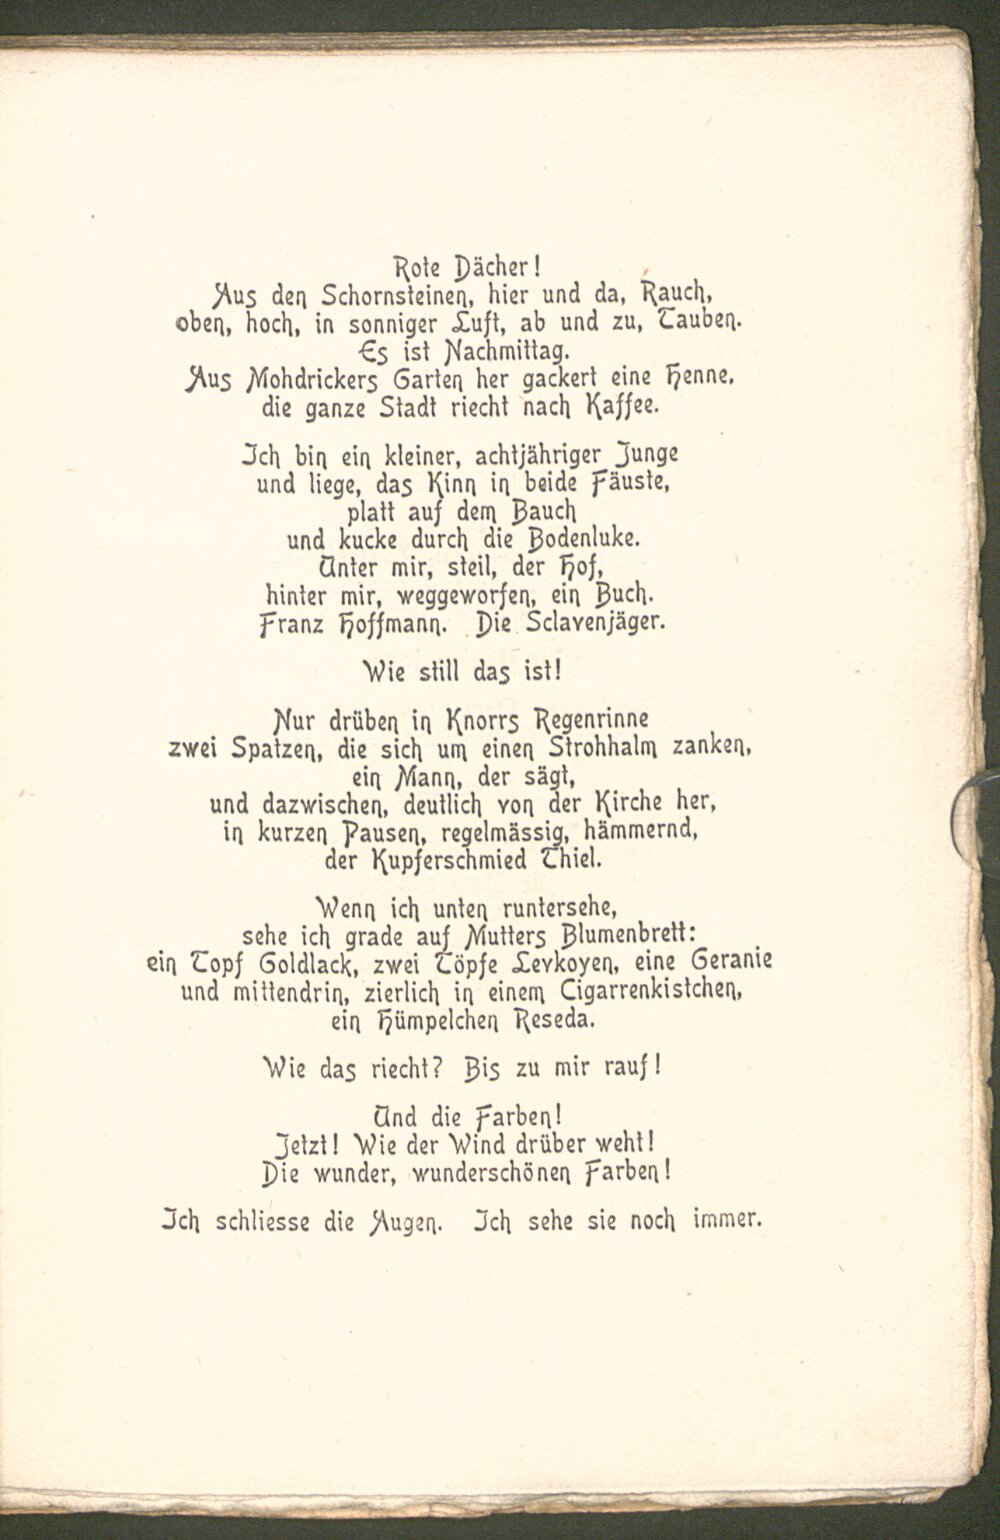 Rote Dächer!
Aus den Schornsteinen, hier und da, Rauch,
oben, hoch, in sonniger Luft, ab und zu, Tauben.
Es ist Nachmittag.
Aus Mohdrickers Garten her gackert eine Henne,
die ganze Stadt riecht nach Kaffee.
Ich bin ein kleiner, achtjähriger Junge
und liege, das Kinn in beide Fäuste,
platt auf dem Bauch
und kucke durch die Bodenluke.
Unter mir, steil, der Hof,
hinter mir, weggeworfen, ein Buch.
Franz Hoffmann. Die Sclavenjäger.
Wie still das ist!
Nur drüben in Knorrs Regenrinne
zwei Spatzen, die sich um einen Strohhalm zanken,
ein Mann, der sägt,
und dazwischen, deutlich von der Kirche her,
in kurzen Pausen, regelmässig, hämmernd,
der Kupferschmied Thiel.
Wenn ich unten runtersehe,
sehe ich grade auf Mutters Blumenbrett:
ein Topf Goldlack, zwei Töpfe Levkoyen, eine Geranie
und mittendrin, zierlich in einem Cigarrenkistchen,
ein Hümpelchen Reseda.
Wie das riecht? Bis zu mir rauf!
Und die Farben!
Jetzt! Wie der Wind drüber weht!
Die wunder, wunderschönen Farben!
Ich schliesse die Augen. Ich sehe sie noch immer.